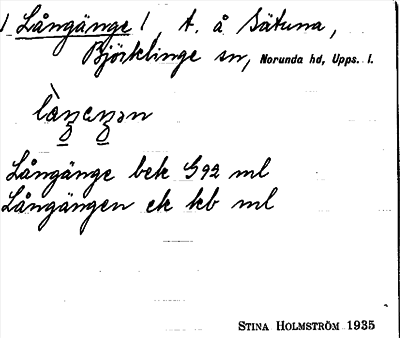 / Långänge / t. å Sätuna,
Björklinge sn, Norunda hd, Upps. l.
Långänge bek G92 ml
Långängen ek kb ml
STINA HOLMSTRÖM 1935